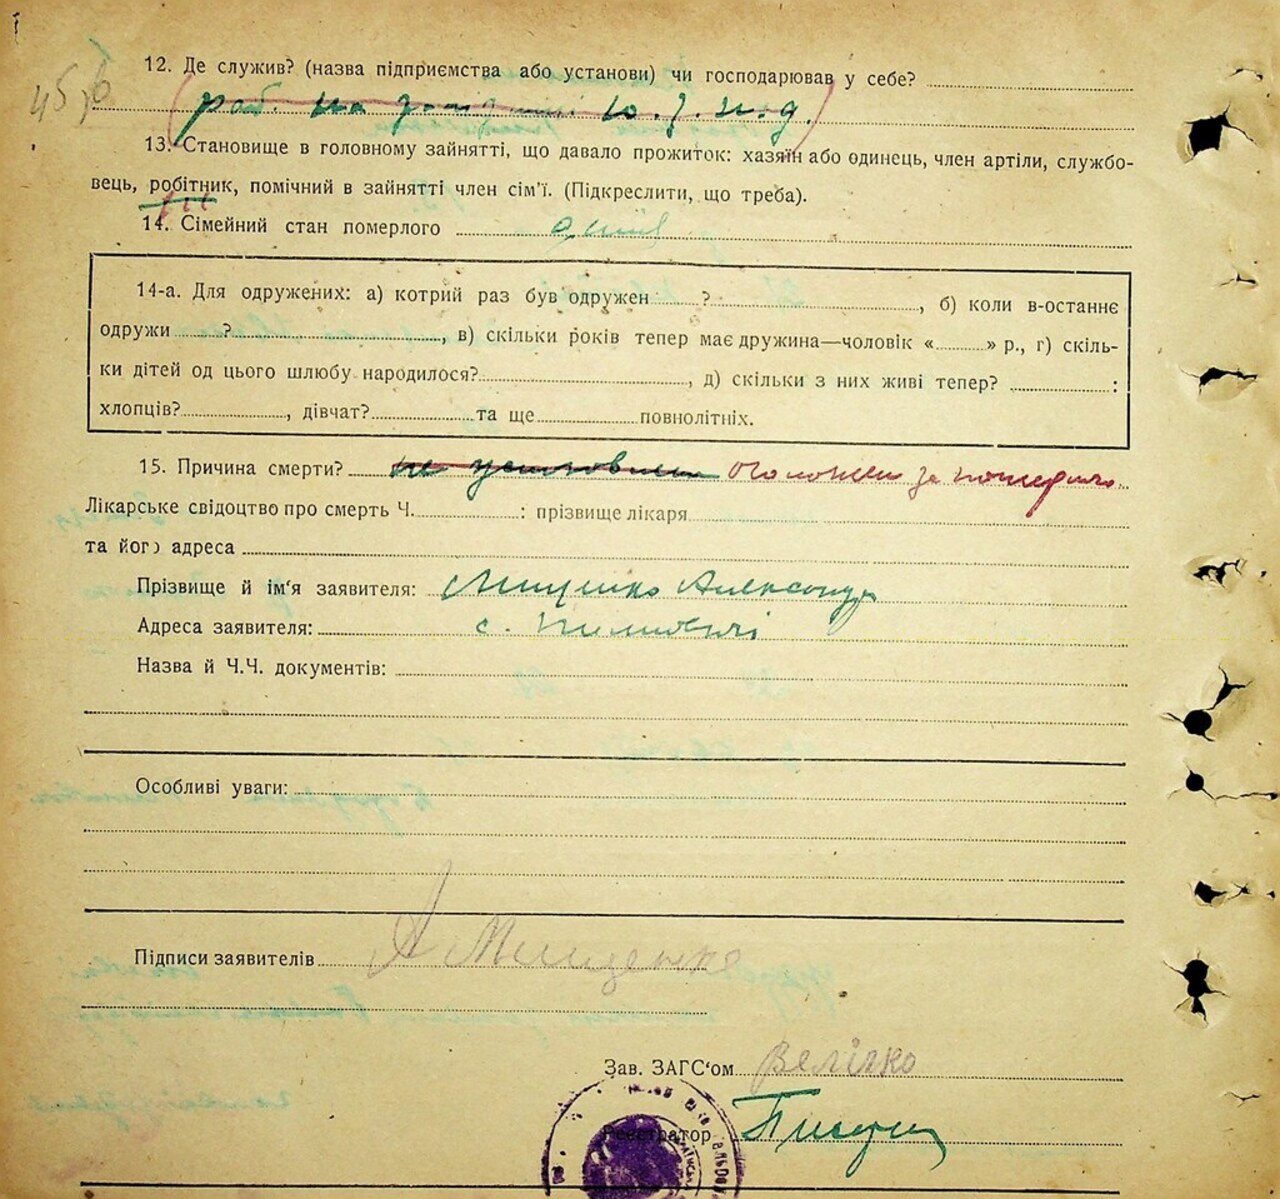 45 б
12. Де служив? (назва підприємства або установи) чи господарював у себе?
раб. на
13. Становище в головному зайнятті, що давало прожиток: хазяїн або одинець, член артіли, службо-
вець, робітник, помічний в зайнятті член сім'ї. (Підкреслити, що треба).
14. Сімейний стан померлого
14-а. Для одружених: а) котрий раз був одружен ? , б) коли в-останнє
одружи ? , в) скільки років тепер має дружина—чоловік « » р., г) скіль-
ки дітей од цього шлюбу народилося? , д) скільки з них живі тепер? :
хлопців? , дівчат? та ще повнолітніх.
15. Причина смерти? не установлена оголошен за померлого
Лікарське свідоцтво про смерть Ч. : прізвище лікаря
та його адреса
Прізвище й ім'я заявителя: Мищенко Александр
Адреса заявителя: с.
Назва й Ч.Ч. документів:
Особливі уваги:
Підписи заявителів А Мищенко
Зав. ЗАГС'ом Велічко
Реєстратор